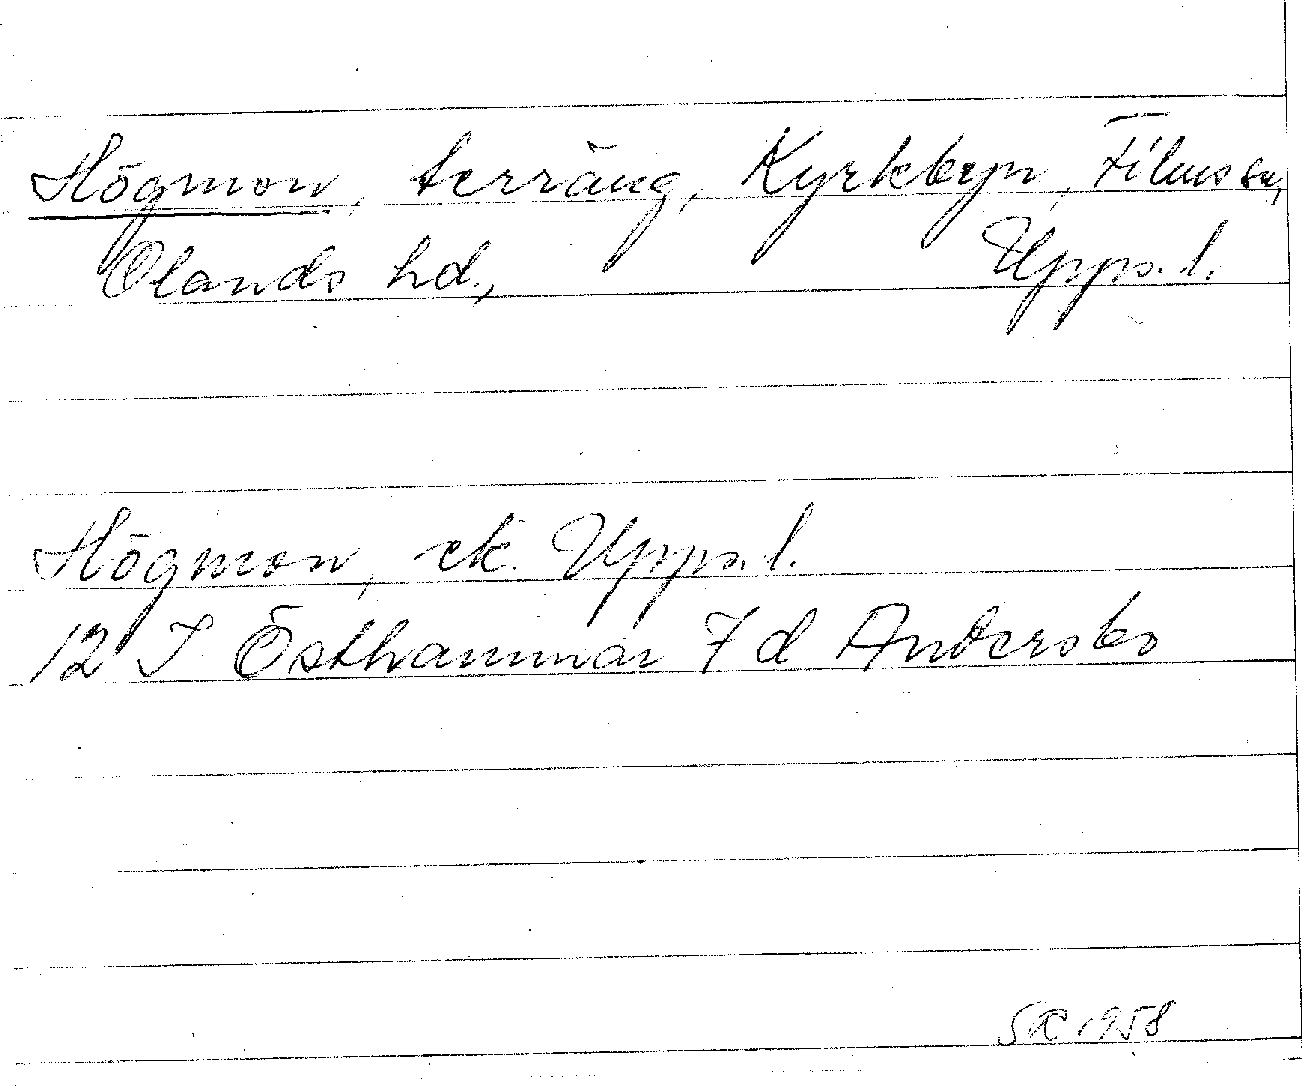 Högmon, terräng, Kyrkbyn, Films sn,
Olands hd., Upps. l.
Högmon, ek. Upps. l.
12 I Östhammar 7 d Andersbo
SK 1958